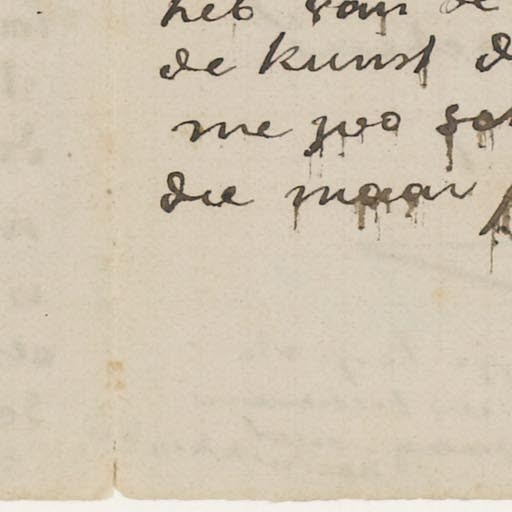 heb van de
de kunst d
me zoo
die maar